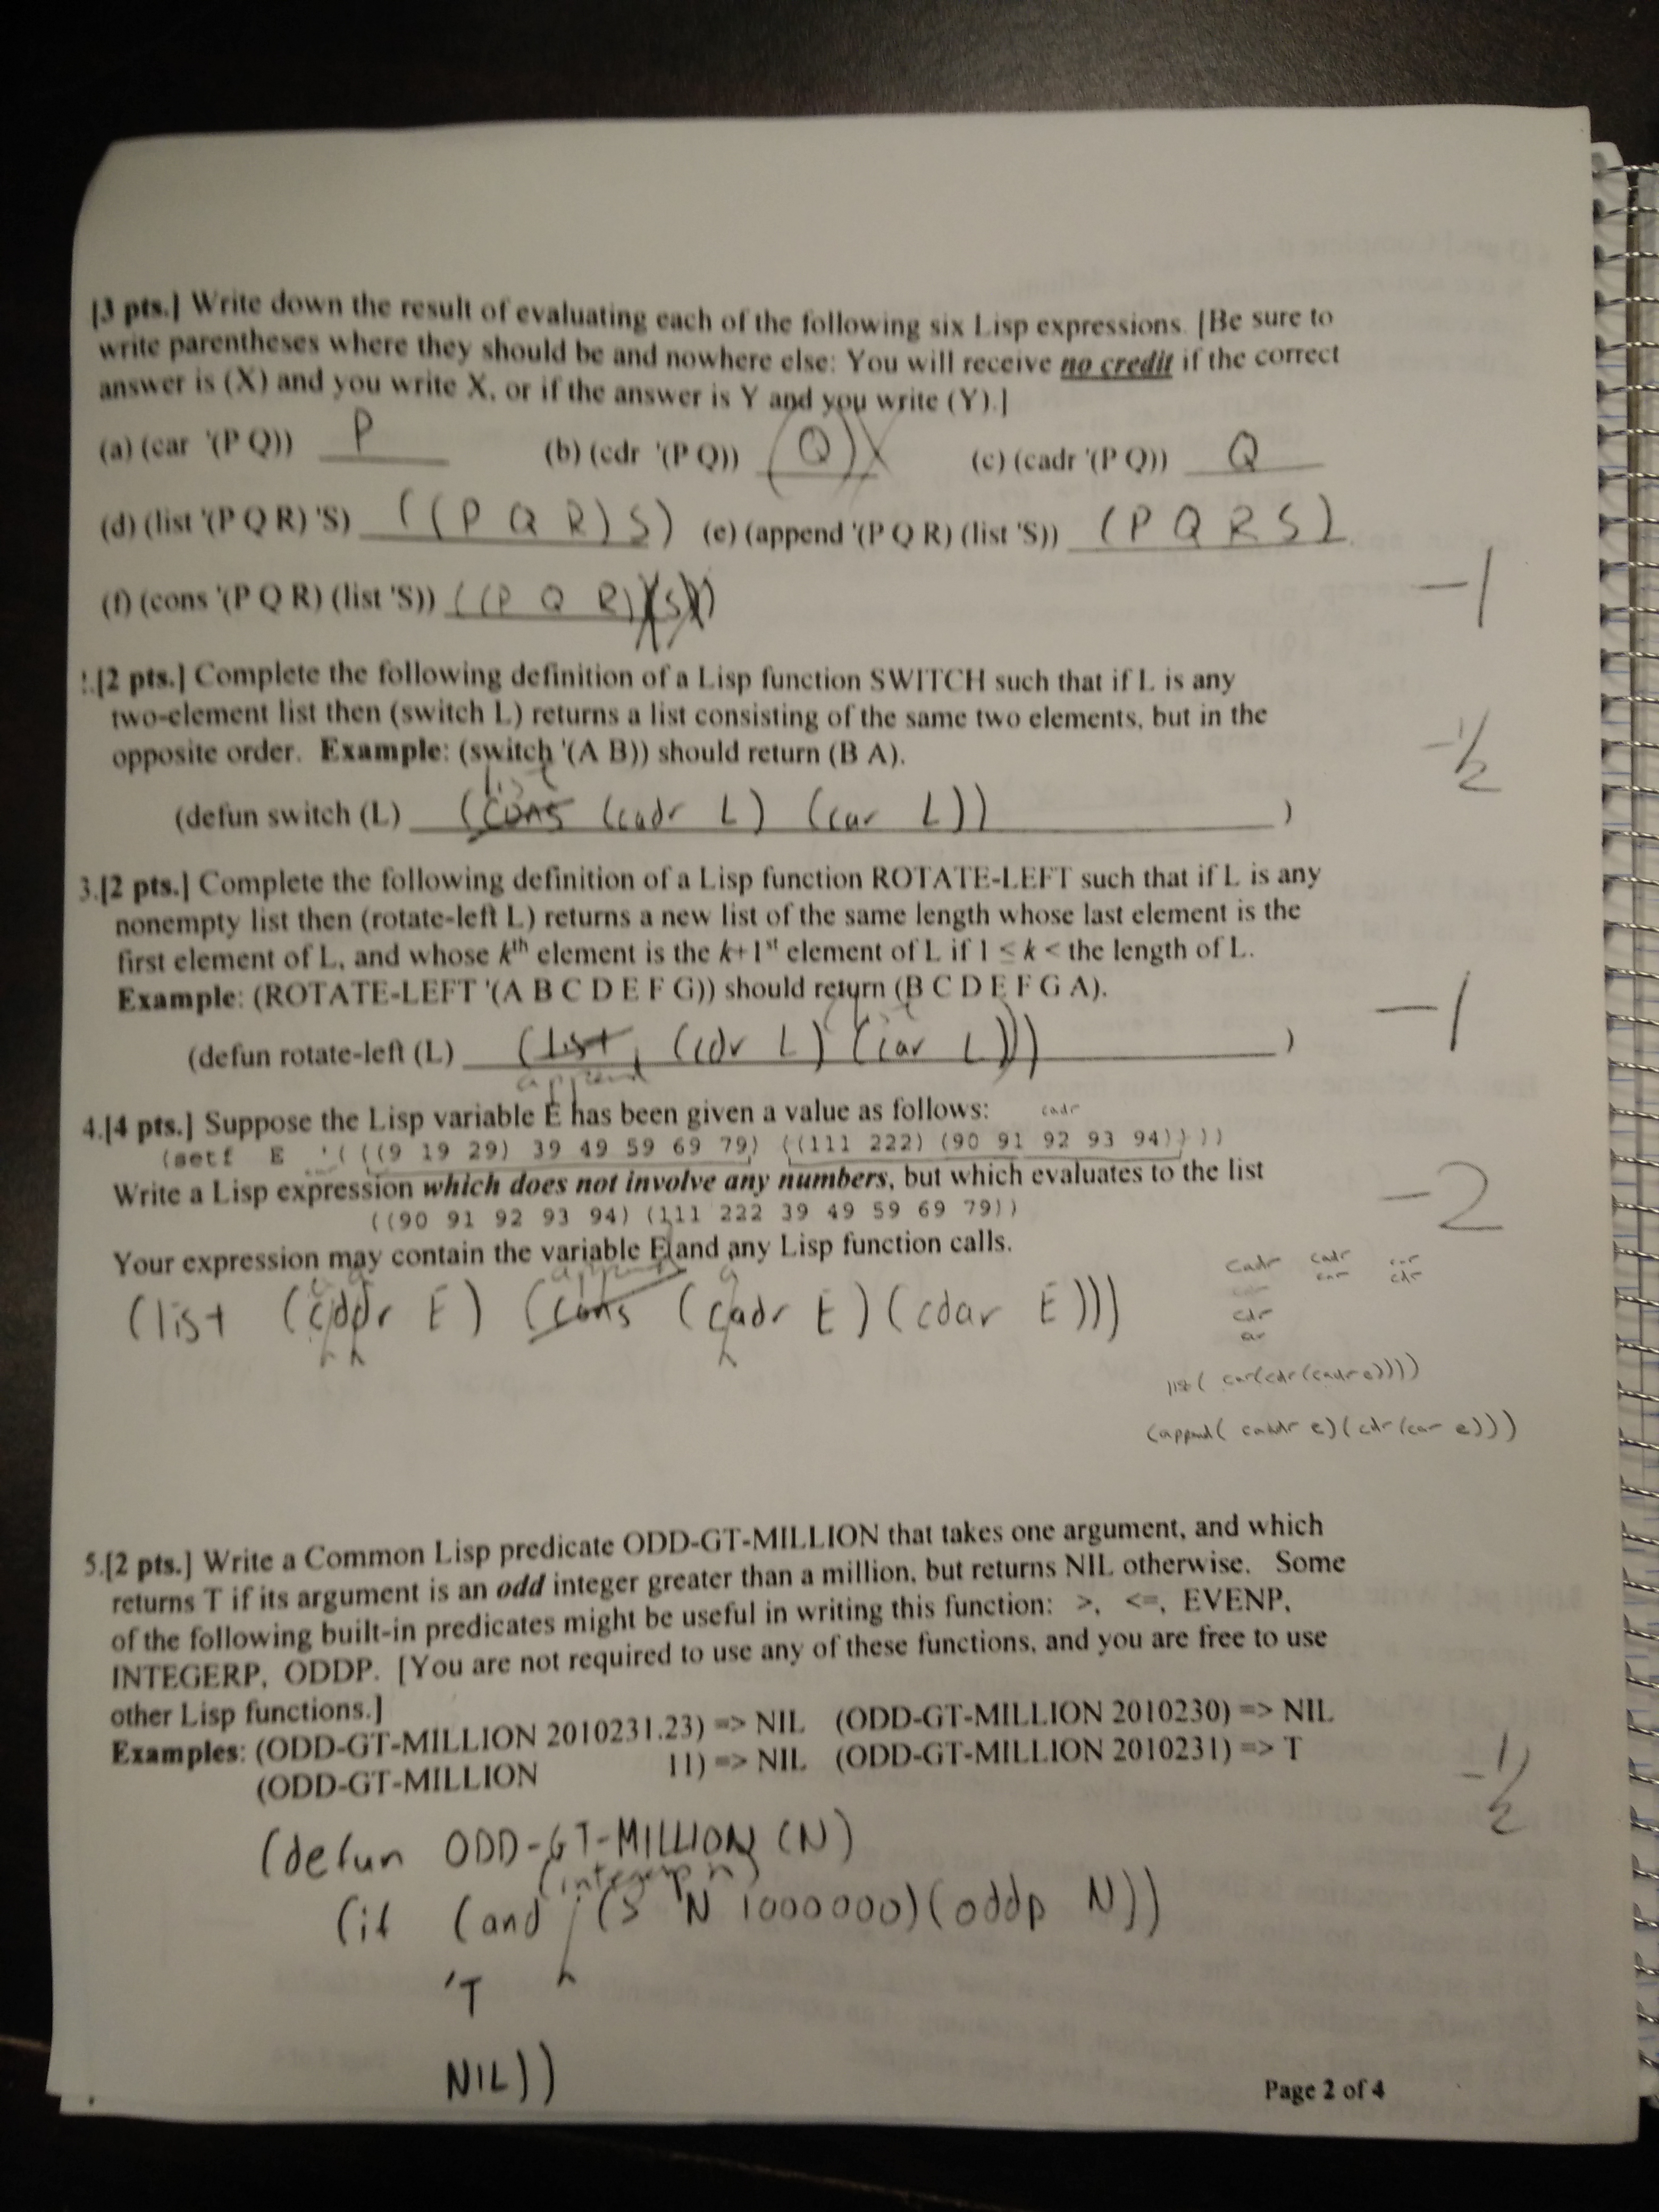 [3 pts.] Write down the result of evaluating each of the following six Lisp expressions. [Be sure to
write parentheses where they should be and nowhere else: You will receive no credit if the correct
answer is (X) and you write X, or if the answer is Y and you write (Y).]
(a) (car '(P Q)) P (b) (cdr '(P Q)) (Q) (c) (cadr '(P Q)) Q
(d) (list '(P Q R) 'S) ((P Q R) S) (e) (append '(P Q R) (list 'S)) (P Q R S)
-1
(f) (cons '(P Q R) (list 'S)) ((P Q R) (S))
2.[2 pts.] Complete the following definition of a Lisp function SWITCH such that if L is any
two-element list then (switch L) returns a list consisting of the same two elements, but in the
opposite order. Example: (switch '(A B)) should return (B A).
-1/2
list
(defun switch (L) (cons (cadr L) (car L)) )
3.[2 pts.] Complete the following definition of a Lisp function ROTATE-LEFT such that if L is any
nonempty list then (rotate-left L) returns a new list of the same length whose last element is the
first element of L, and whose kth element is the k+1st element of L if 1 ≤ k < the length of L.
Example: (ROTATE-LEFT '(A B C D E F G)) should return (B C D E F G A).
-1
(defun rotate-left (L) (list (cdr L) (car L))) )
append
4.[4 pts.] Suppose the Lisp variable E has been given a value as follows:
cadr
(setf E '( ((9 19 29) 39 49 59 69 79) ((111 222) (90 91 92 93 94)) ))
Write a Lisp expression which does not involve any numbers, but which evaluates to the list
-2
((90 91 92 93 94) (111 222 39 49 59 69 79))
Your expression may contain the variable E and any Lisp function calls.
cadr cadr car
car cdr
append
(list (cddr E) (cons (cadr E) (cdar E)))
cdr
list( car(cdr(cadr e))))
(append( caadr e)(cdr (car e)))
5.[2 pts.] Write a Common Lisp predicate ODD-GT-MILLION that takes one argument, and which
returns T if its argument is an odd integer greater than a million, but returns NIL otherwise. Some
of the following built-in predicates might be useful in writing this function: >, <=, EVENP,
INTEGERP, ODDP. [You are not required to use any of these functions, and you are free to use
other Lisp functions.]
Examples: (ODD-GT-MILLION 2010231.23) => NIL (ODD-GT-MILLION 2010230) => NIL
(ODD-GT-MILLION 11) => NIL (ODD-GT-MILLION 2010231) => T
-1/2
(defun ODD-GT-MILLION (N)
(integerp n)
(if (and (> N 1000000)(oddp N))
'T
NIL))
Page 2 of 4